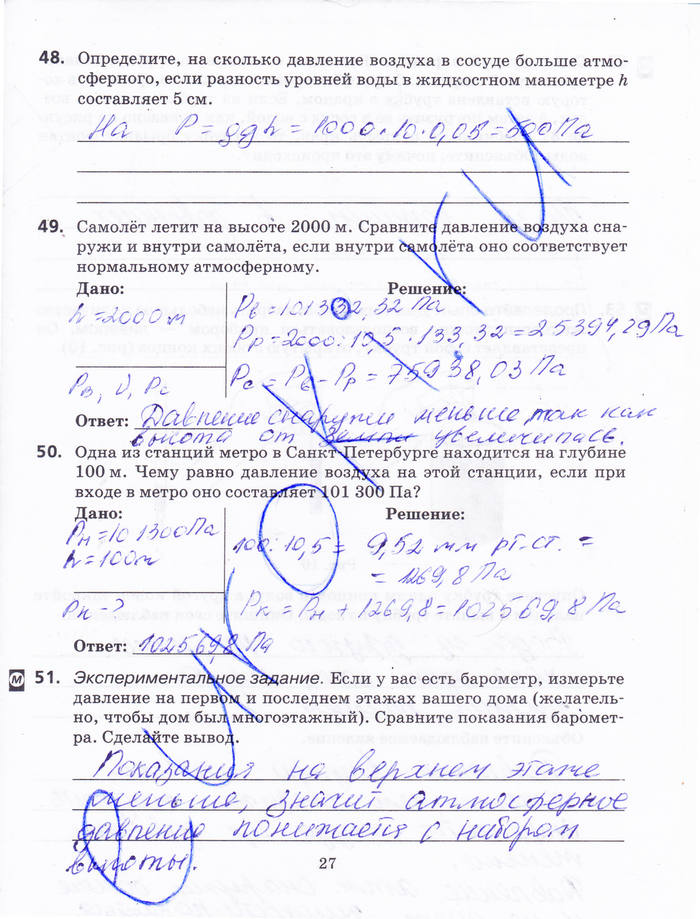 48. Определите, на сколько давление воздуха в сосуде больше атмо-
сферного, если разность уровней воды в жидкостном манометре h
составляет 5 см.
На P = ρgh = 1000 · 10 · 0,05 = 500 Па
49. Самолёт летит на высоте 2000 м. Сравните давление воздуха сна-
ружи и внутри самолёта, если внутри самолёта оно соответствует
нормальному атмосферному.
Дано: Решение:
h = 2000 м
Pв = 101332,32 Па
Pр = 2000 : 10,5 · 133,32 = 25394,29 Па
Pв, V, Pс
Pс = Pв - Pр = 75938,03 Па
Ответ: Давление снаружи меньше, так как
высота от Земли увеличилась.
50. Одна из станций метро в Санкт-Петербурге находится на глубине
100 м. Чему равно давление воздуха на этой станции, если при
входе в метро оно составляет 101 300 Па?
Дано: Решение:
Pн = 101300 Па
h = 100 м
100 : 10,5 = 9,52 мм рт. ст. =
= 1269,8 Па
Pк - ?
Pк = Pн + 1269,8 = 102569,8 Па
Ответ: 102569,8 Па
М 51. Экспериментальное задание. Если у вас есть барометр, измерьте
давление на первом и последнем этажах вашего дома (желатель-
но, чтобы дом был многоэтажный). Сравните показания баромет-
ра. Сделайте вывод.
Показания на верхнем этаже
меньше, значит атмосферное
давление понижается с набором
высоты.
27